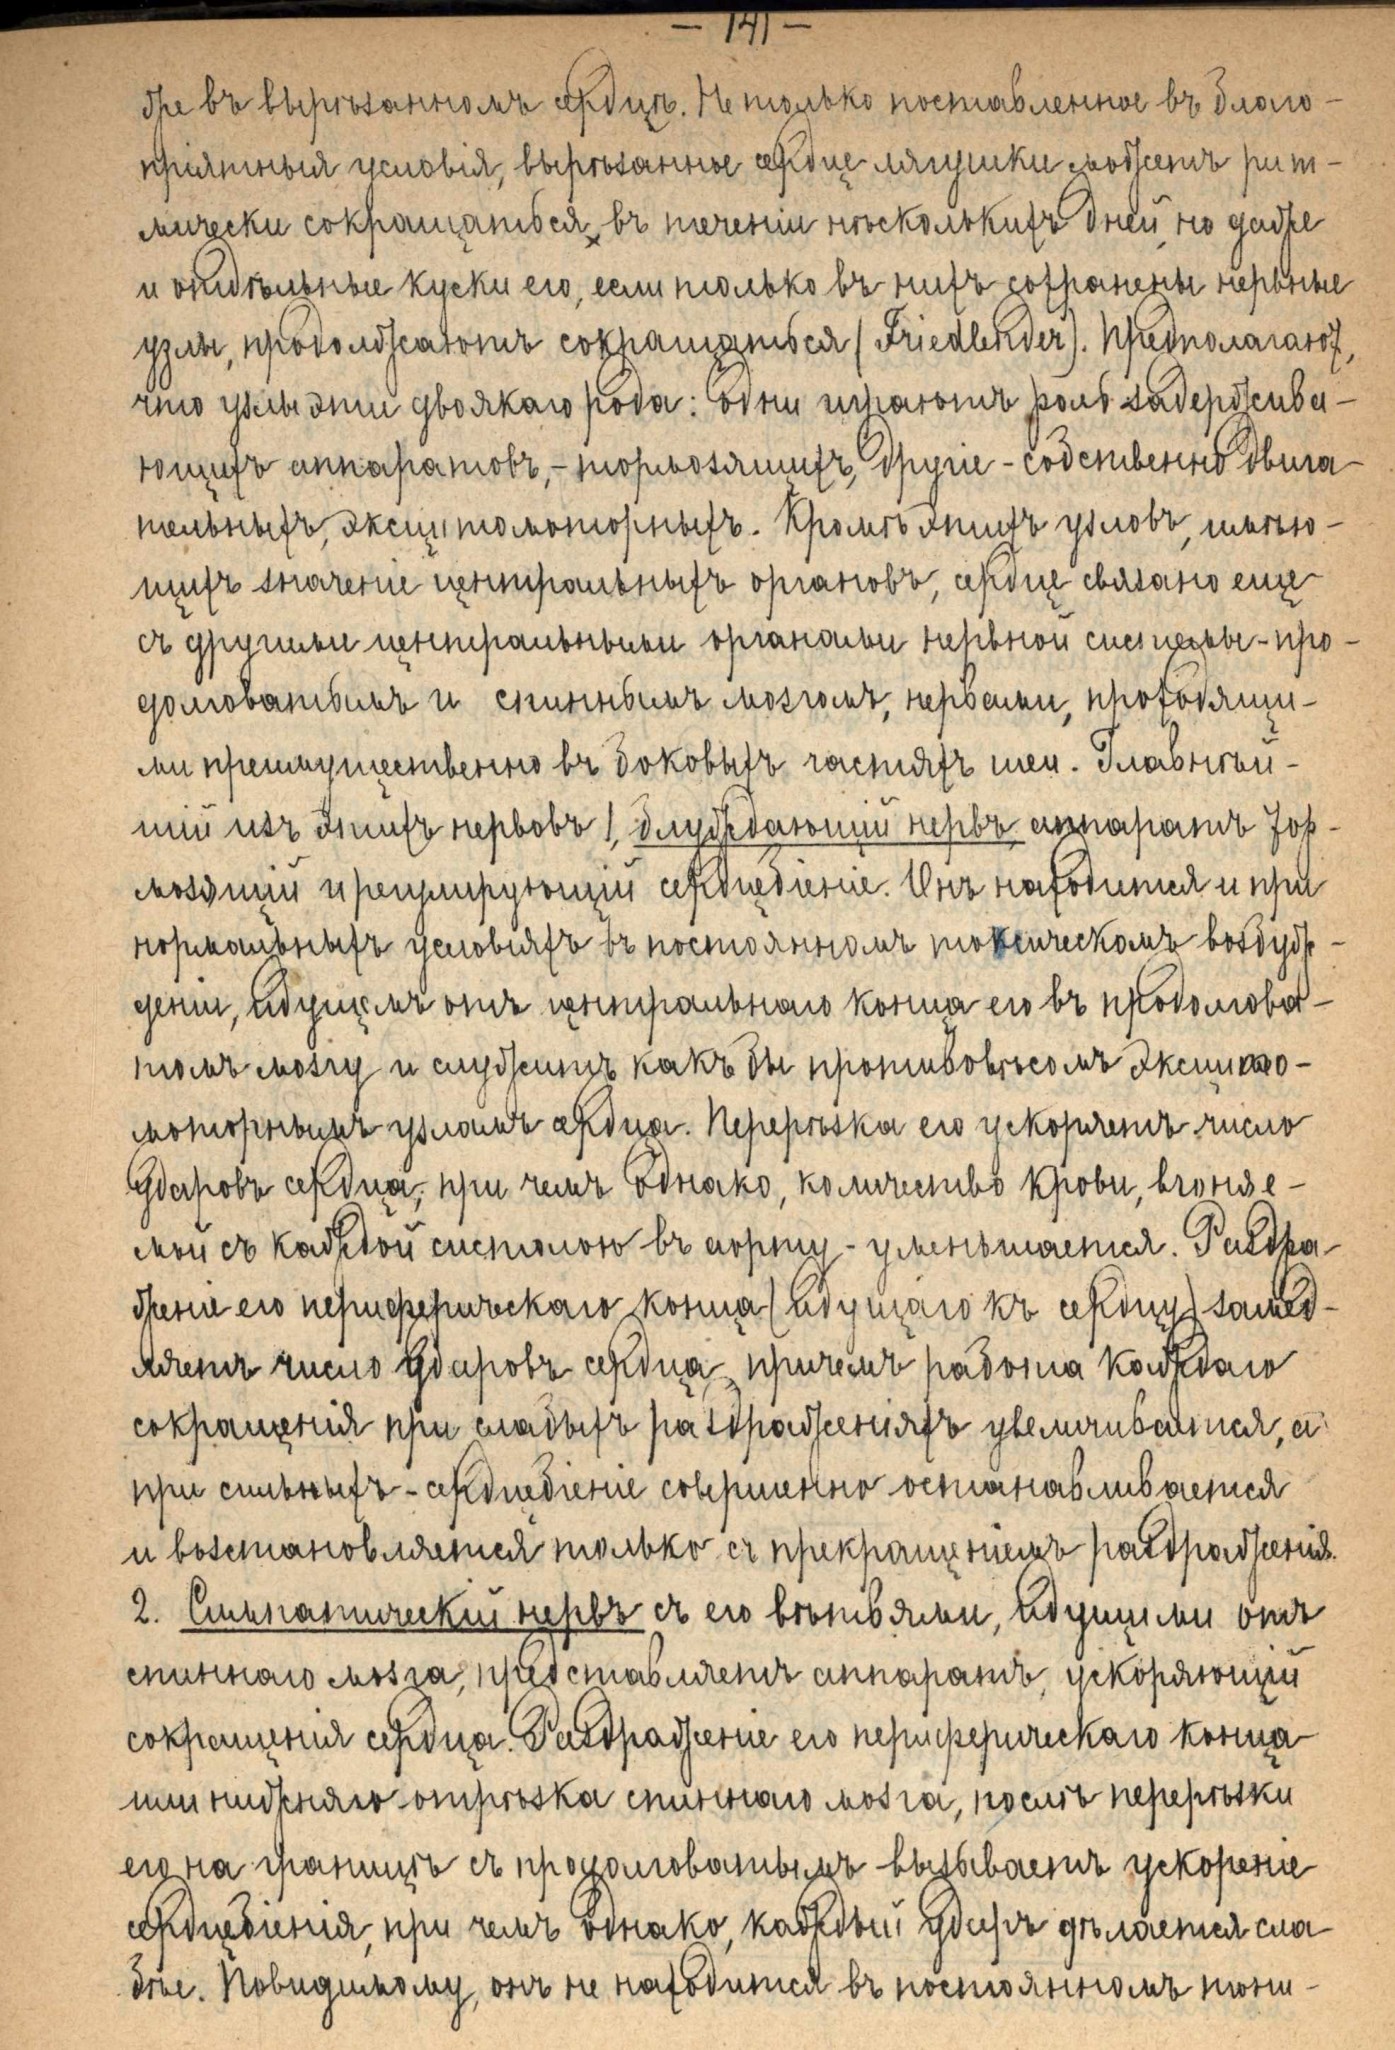 — 141 —
же въ вырѣзанномъ сердцѣ. Не только поставленное въ благо-
пріятныя условія, вырѣзанное сердце лягушки можетъ рит-
мически сокращаться въ теченіи нѣсколькихъ дней, но даже
и отдѣльные куски его, если только въ нихъ сохранены нервные
узлы, продолжаютъ сокращаться (Friedlender). Предполагают,
что узлы эти двоякаго рода: одни играютъ роль задержива-
ющихъ аппаратовъ, - тормозящихъ, другіе - собственно двига-
тельныхъ, эксцитомоторныхъ. Кромѣ этихъ узловъ, имѣю-
щихъ значеніе центральныхъ органовъ, сердце связано еще
съ другими центральными органами нервной системы - про-
долговатымъ и спиннымъ мозгомъ, нервами, проходящи-
ми преимущественно въ боковыхъ частяхъ шеи. Главнѣй-
шій изъ этихъ нервовъ 1, блуждающій нервъ аппаратъ тор-
мозящій и регулирующій сердцебіеніе. Онъ находится и при
нормальныхъ условіяхъ въ постоянномъ токсическомъ возбуж-
деніи, идущемъ отъ центральнаго конца его въ продолгова-
томъ мозгу и служитъ какъ бы противовѣсомъ эксцито-
моторнымъ узламъ сердца. Перерѣзка его ускоряетъ число
ударовъ сердца, при чемъ однако, количество крови, вгоняе-
мой съ каждой систолою въ аорту - уменьшается. Раздра-
женіе его периферическаго конца (идущаго къ сердцу) замед-
ляетъ число ударовъ сердца, причемъ работа каждаго
сокращенія при слабыхъ раздраженіяхъ увеличивается, а
при сильныхъ - сердцебіеніе совершенно останавливается
и возстановляется только съ прекращеніемъ раздраженія.
2. Симпатическій нервъ съ его вѣтвями, идущими отъ
спиннаго мозга, представляетъ аппаратъ, ускоряющій
сокращенія сердца. Раздраженіе его периферическаго конца
или нижняго отрѣзка спиннаго мозга, послѣ перерѣзки
его на границѣ съ продолговатымъ вызываетъ ускореніе
сердцебіенія, при чемъ однако, каждый ударъ дѣлается сла-
бѣе. Повидимому, онъ не находится въ постоянномъ тони-